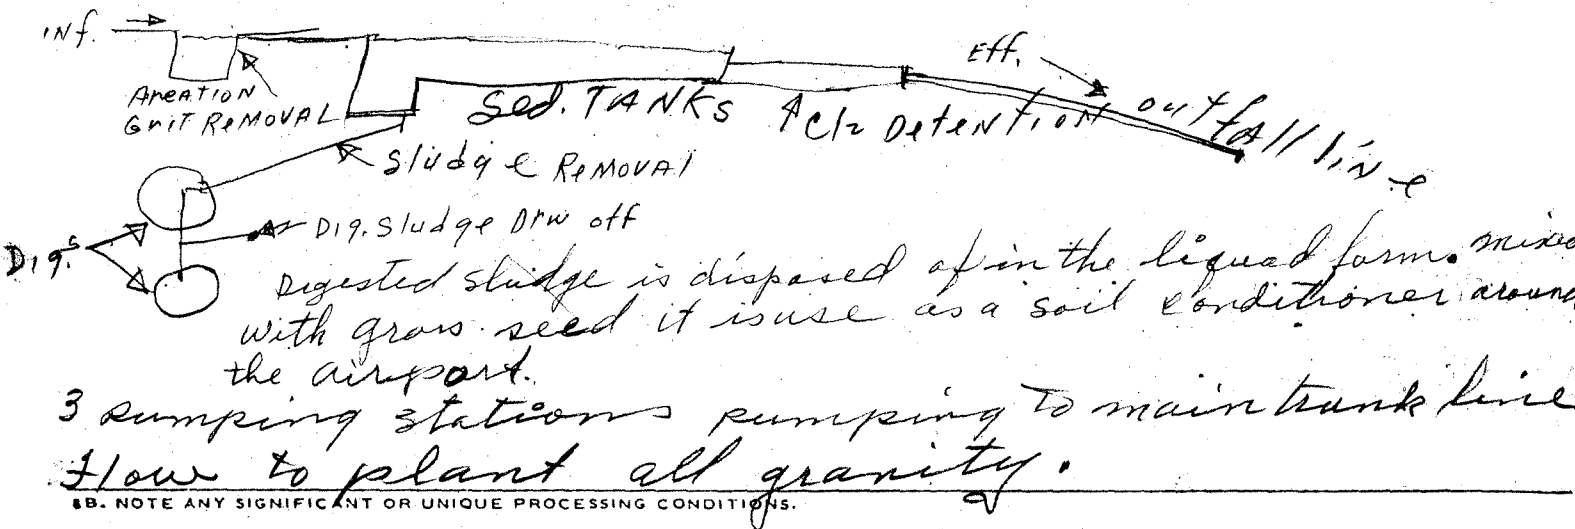 INf.
Eff.
AReATION
GRiT ReMOVAL
Sed. TANKS
Cl2 DeteNtiON
outfAll liNe
Sludge ReMOVAl
Dig.s
Dig. Sludge Drw off
Digested sludge is disposed of in the liquad form. mixed
with grass seed it is use as a soil conditioner around
the airport.
3 pumping stations pumping to main trunk line
flow to plant all gravity.
8B. NOTE ANY SIGNIFICANT OR UNIQUE PROCESSING CONDITIONS.